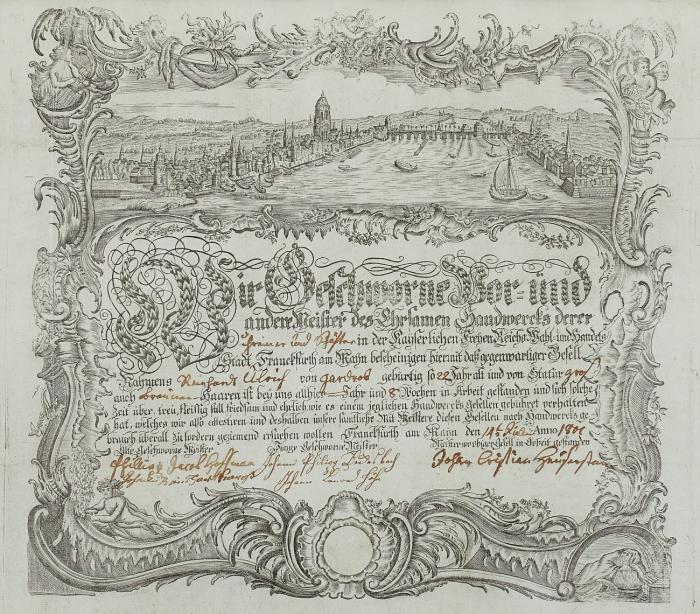 Wir Geschworne Vor- und
andere Meister des Ehrsamen Handwercks derer
in der Kaiserlichen Freyen Reichs Wahl und Handels
Stadt Franckfurth am Mayn bescheinigen hiermit daß gegenwärtiger Gesell
Nahmens Ulrich von gebürtig so 22 Jahr alt und von Statur groß
auch braunen Haaren ist bei uns allhier Jahr und 8 Wochen in Arbeit gestanden und sich solche
Zeit über treu, fleißig still friedsam und ehrlich, wie es einem jeglichen Handwercks Gesellen gebühret verhalten
hat, welches wir also attestiren und deshalben unsere sämtliche Mit Meistere diesen Gesellen nach Handwercks ge-
brauch überall zu fördern geziemend ersuchen wollen Franckfurth am Mayn den Anno 1801
Alte Geschworne Meister Junge Geschworne Meister Meister wo obiger Gesell in Arbeit gestanden
Philipp Jacob Hoffman Johann Philips Johan Cristian
Johann